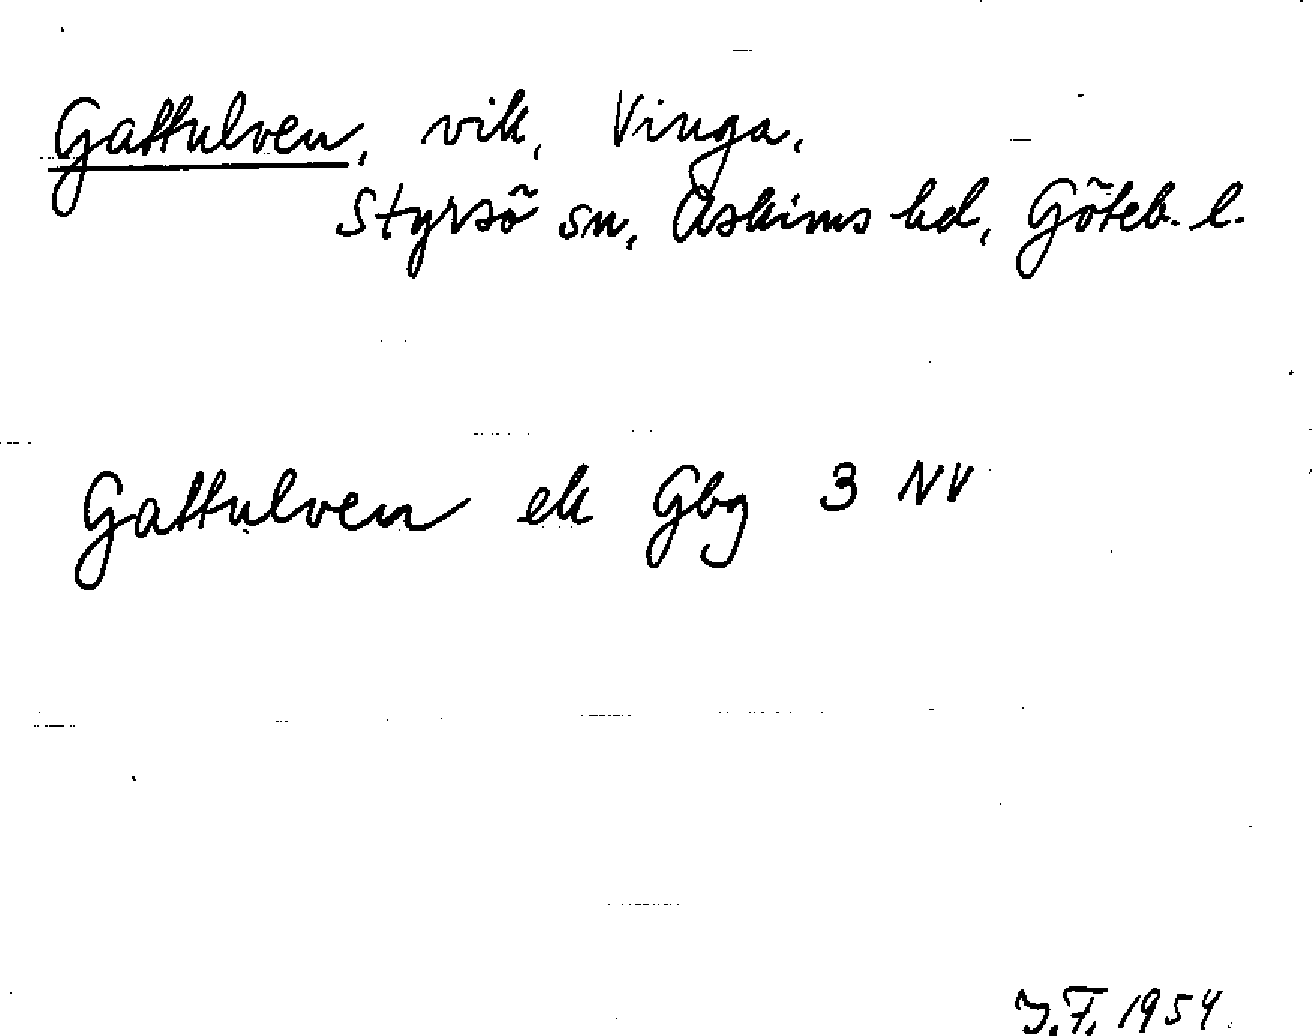 Gattulven, vik, Vinga,
Styrsö sn, Askims hd, Göteb. l.
Gattulven ek Gbg 3 NV
J.F. 1954